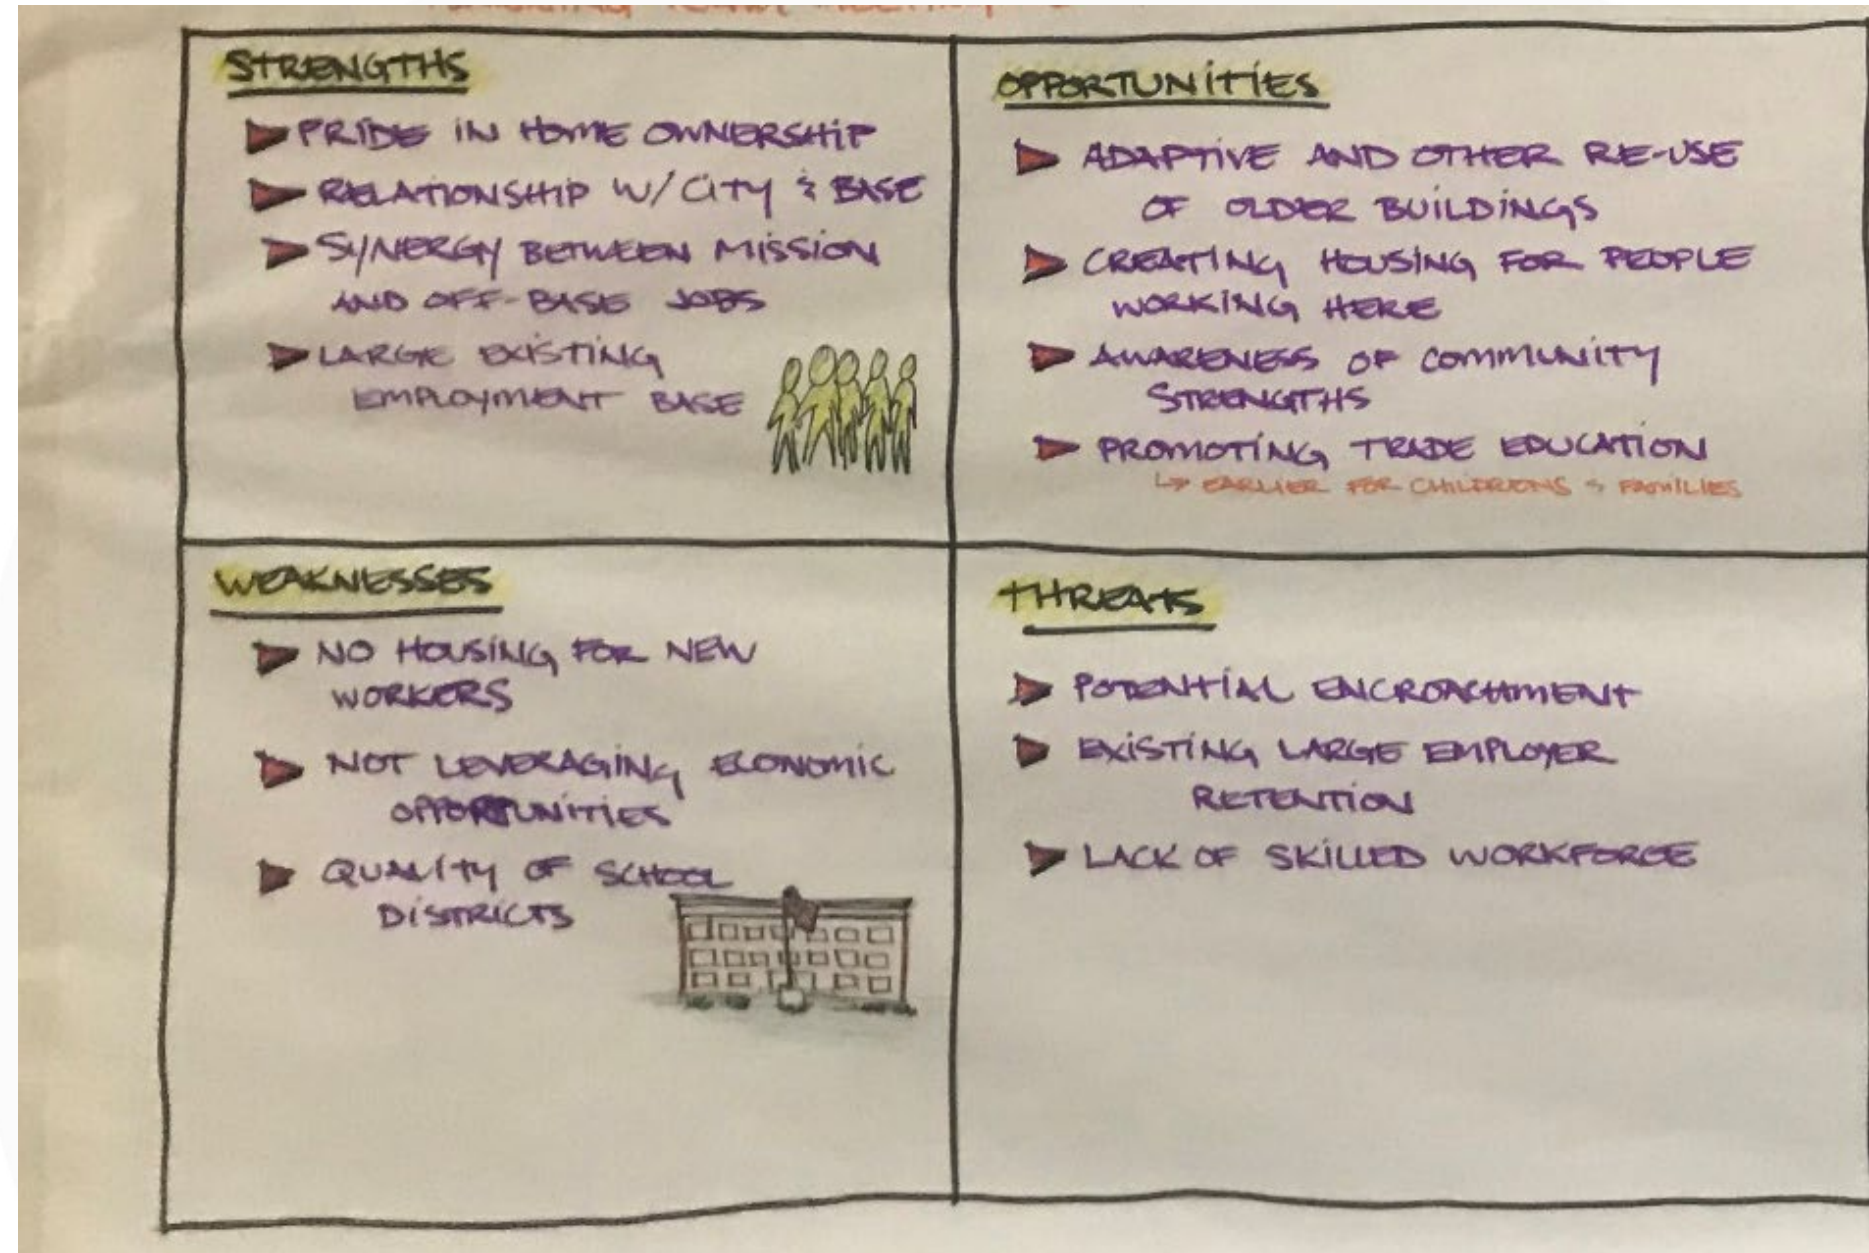 TEAM MEETING
STRENGTHS
PRIDE IN HOME OWNERSHIP
RELATIONSHIP W/ CITY & BASE
SYNERGY BETWEEN MISSION
AND OFF-BASE JOBS
LARGE EXISTING
EMPLOYMENT BASE
OPPORTUNITIES
ADAPTIVE AND OTHER RE-USE
OF OLDER BUILDINGS
CREATING HOUSING FOR PEOPLE
WORKING HERE
AWARENESS OF COMMUNITY
STRENGTHS
PROMOTING TRADE EDUCATION
↳ EARLIER FOR CHILDRENS & FAMILIES
WEAKNESSES
NO HOUSING FOR NEW
WORKERS
NOT LEVERAGING ECONOMIC
OPPORTUNITIES
QUALITY OF SCHOOL
DISTRICTS
THREATS
POTENTIAL ENCROACHMENT
EXISTING LARGE EMPLOYER
RETENTION
LACK OF SKILLED WORKFORCE